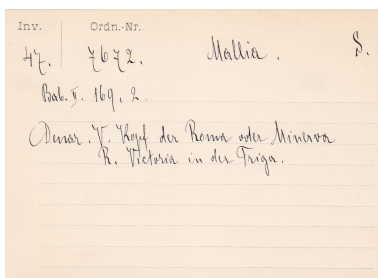 Inv. Ordn.-Nr.
47. 7672. Mallia. S.
Bab. II. 169, 2.
Denar. V. Kopf der Roma oder Minerva
R. Victoria in der Triga.